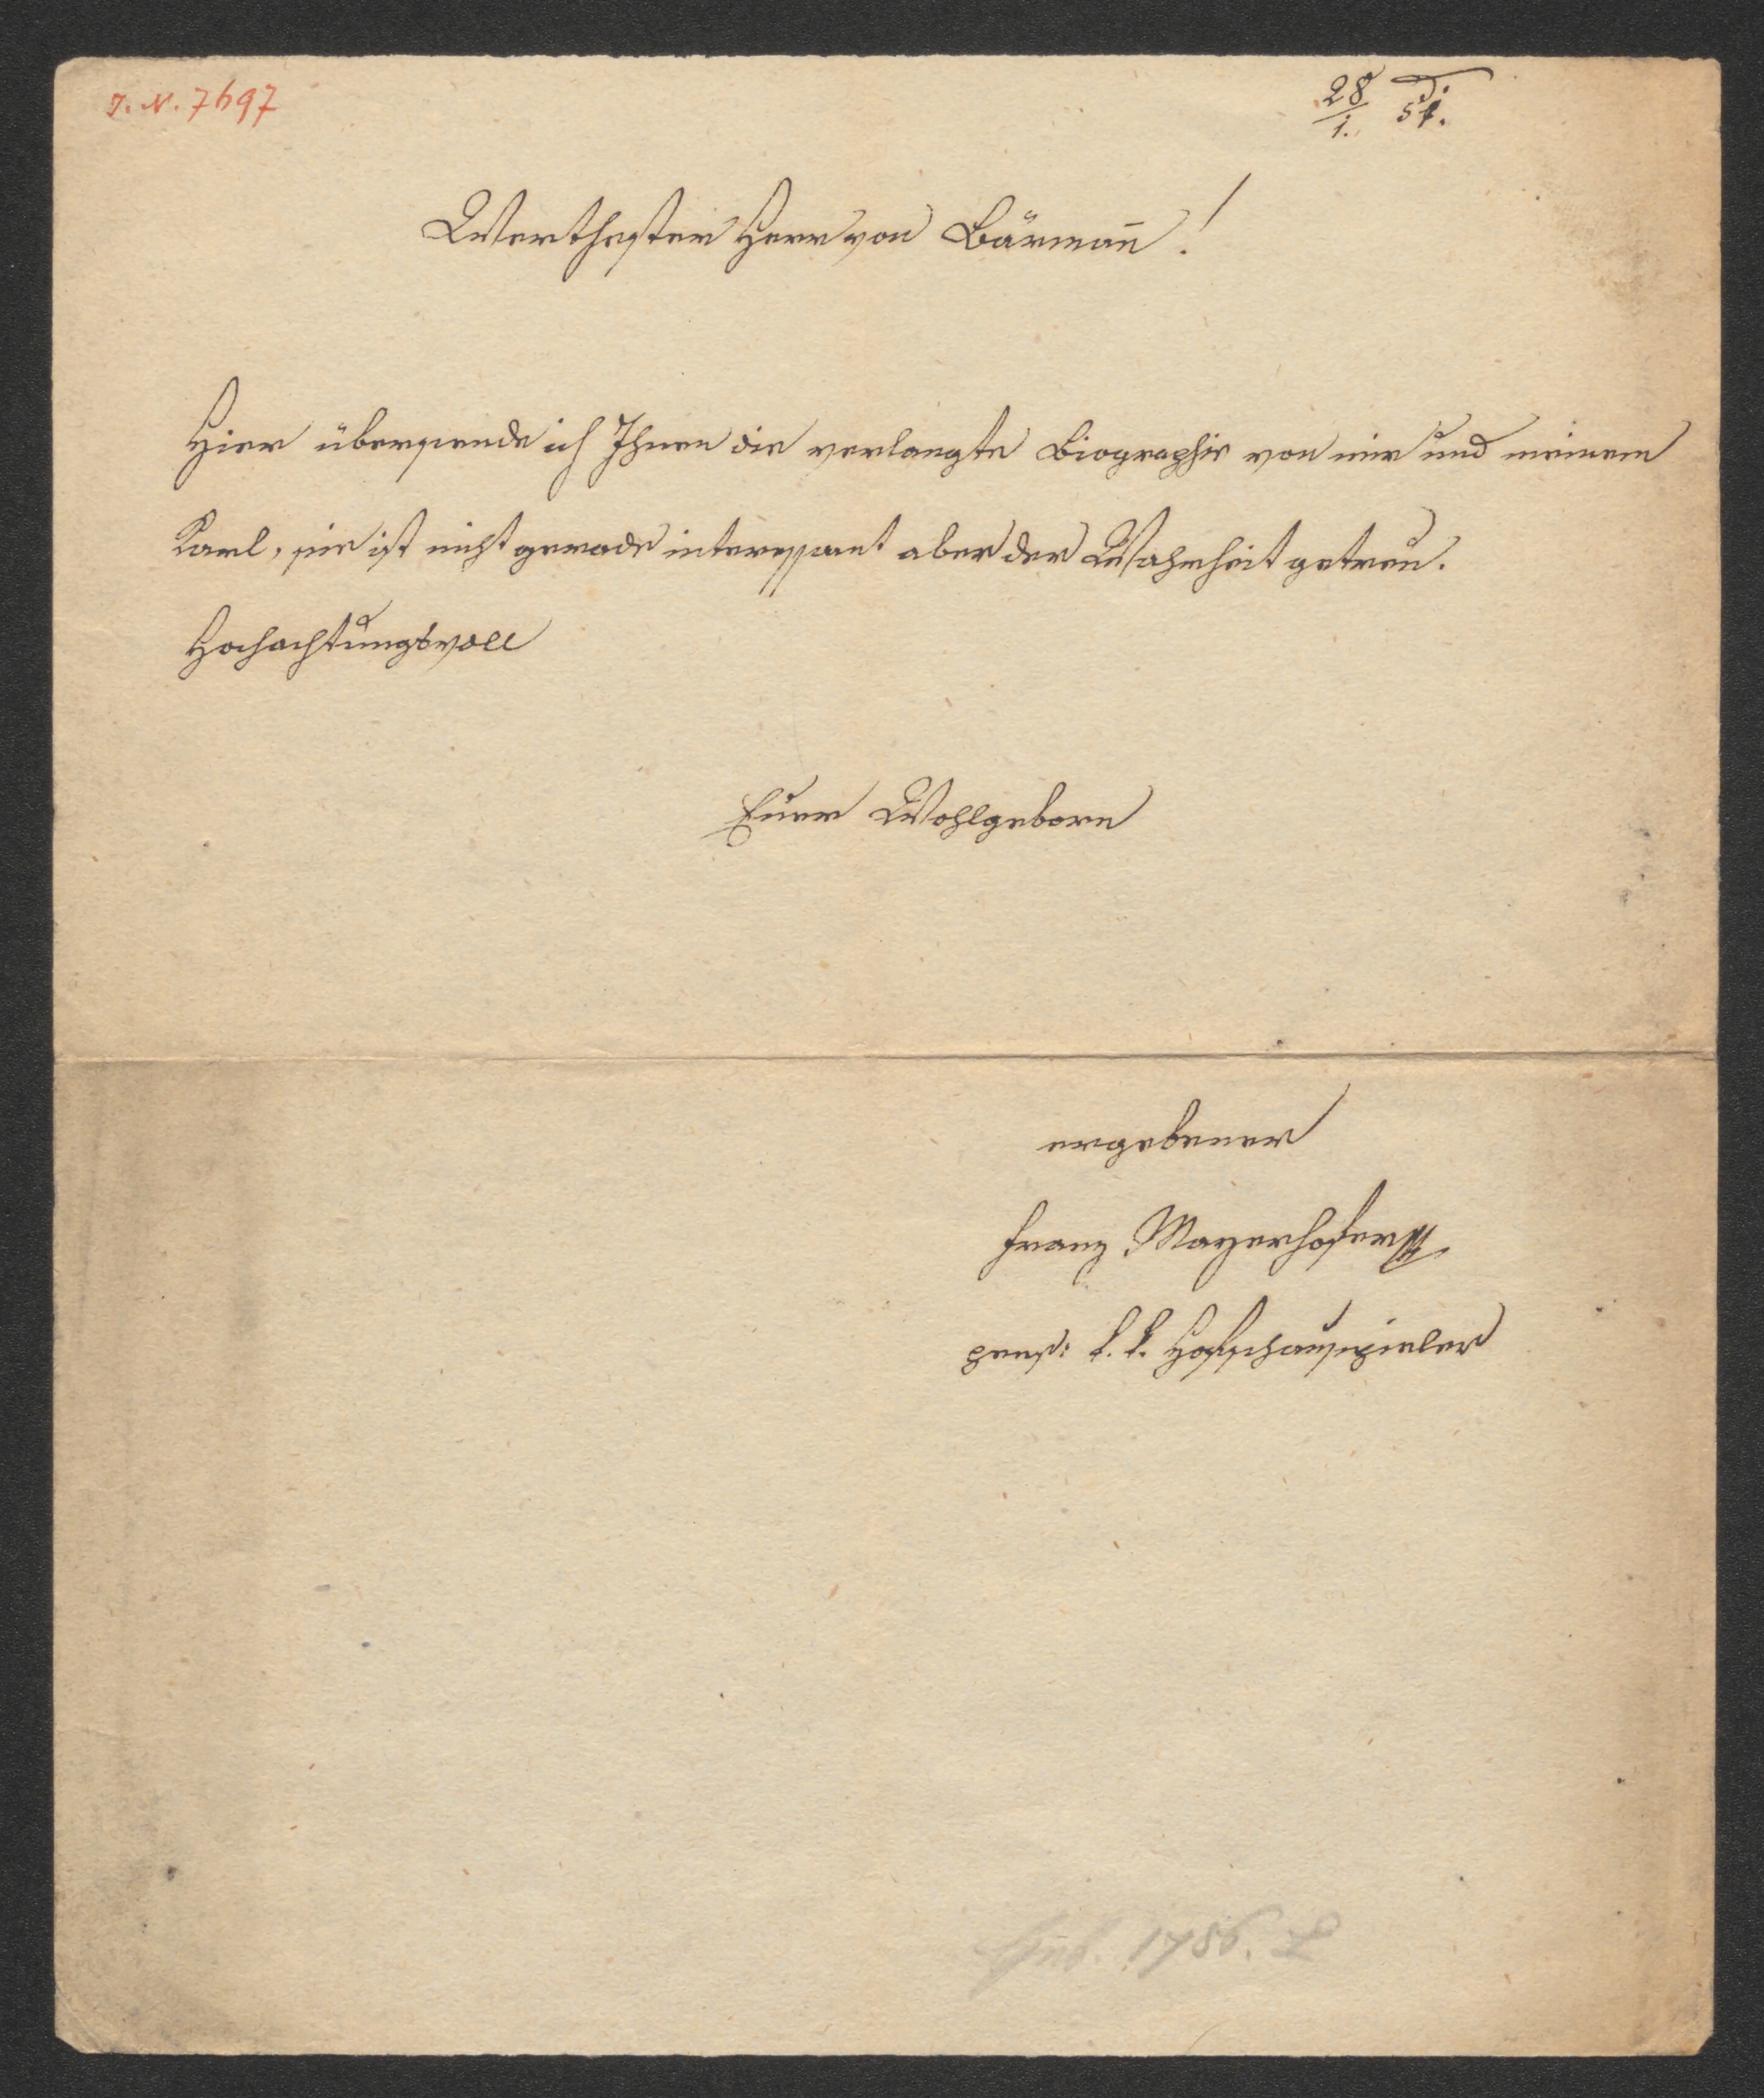 I. N. 7697
28/1. 51.
Werthester Herr von Bärman̄!
Hier übersende ich Ihnen die verlangte Biographie von mir und meinem
Karl, sie ist nicht gerade interessant aber der Wahrheit getreu.
Hochachtungsvoll
Euer Wohlgeborn
ergebener
Franz Mayerhofer
pens: k. k. Hofschauspieler
1786.